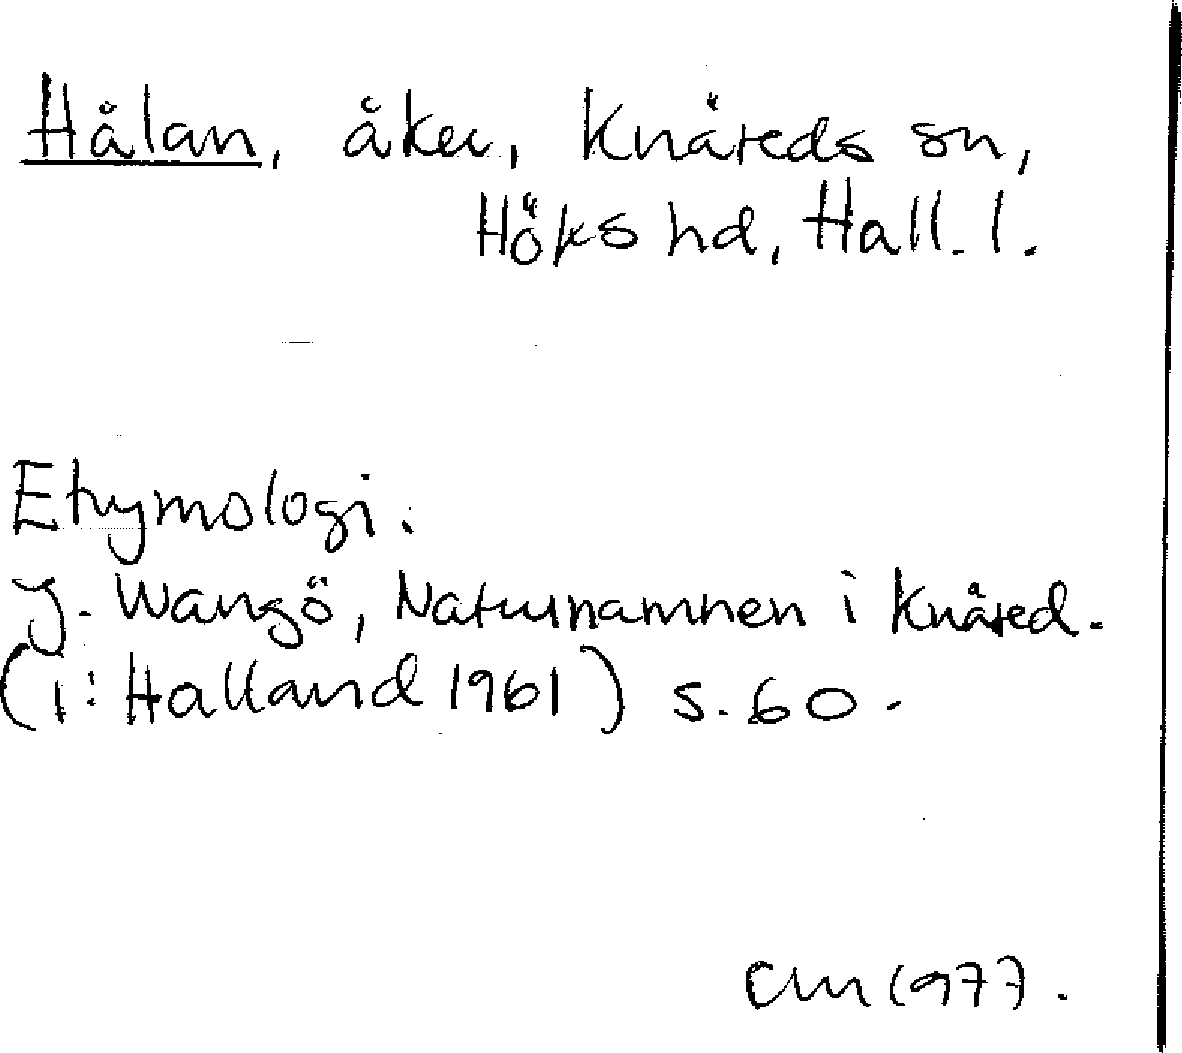 Hålan, åker, Knäreds sn,
Höks hd, Hall. l.
Etymologi.
J. Wangö, Naturnamnen i Knäred.
(i: Halland 1961) s. 60.
CM 1977.